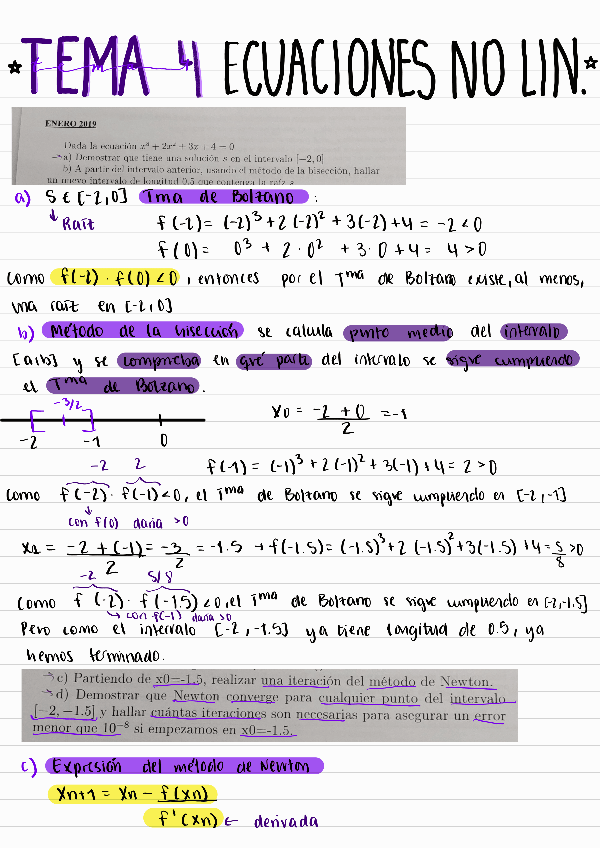 TEMA 4 ECUACIONES NO LIN.
ENERO 2019
Dada la ecuación x³ + 2x² + 3x + 4 = 0
a) Demostrar que tiene una solución s en el intervalo [−2, 0]
b) A partir del intervalo anterior, usando el método de la bisección, hallar
un nuevo intervalo de longitud 0.5 que contenga la raíz s
a) S ∈ [-2,0] Tma de Bolzano :
↓ Raíz
f(-2) = (-2)³ + 2(-2)² + 3(-2) + 4 = -2 < 0
f(0) = 0³ + 2·0² + 3·0 + 4 = 4 > 0
Como f(-2)·f(0)<0, entonces por el Tma de Bolzano existe, al menos,
una raíz en [-2,0]
b) Método de la bisección se calcula punto medio del intervalo
[a,b] y se comprueba en qué parte del intervalo se sigue cumpliendo
el Tma de Bolzano.
-3/2
-2 -1 0
x0 = (-2+0)/2 = -1
f(-1) = (-1)³ + 2(-1)² + 3(-1) + 4 = 2 > 0
-2 2
Como f(-2)·f(-1)<0, el Tma de Bolzano se sigue cumpliendo en [-2,-1]
↓ con f(0) daria >0
x1 = (-2+(-1))/2 = -3/2 = -1.5 → f(-1.5) = (-1.5)³ + 2(-1.5)² + 3(-1.5) + 4 = 5/8 >0
-2 5/8
Como f(-2)·f(-1.5)<0, el Tma de Bolzano se sigue cumpliendo en [-2,-1.5]
↳ con f(-1) daria >0
Pero como el intervalo [-2,-1.5] ya tiene longitud de 0.5, ya
hemos terminado.
c) Partiendo de x0=-1.5, realizar una iteración del método de Newton.
d) Demostrar que Newton converge para cualquier punto del intervalo
[−2, −1.5] y hallar cuántas iteraciones son necesarias para asegurar un error
menor que 10⁻⁸ si empezamos en x0=-1.5.
c) Expresión del método de Newton
Xn+1 = Xn - f(Xn)
f'(Xn) ← derivada